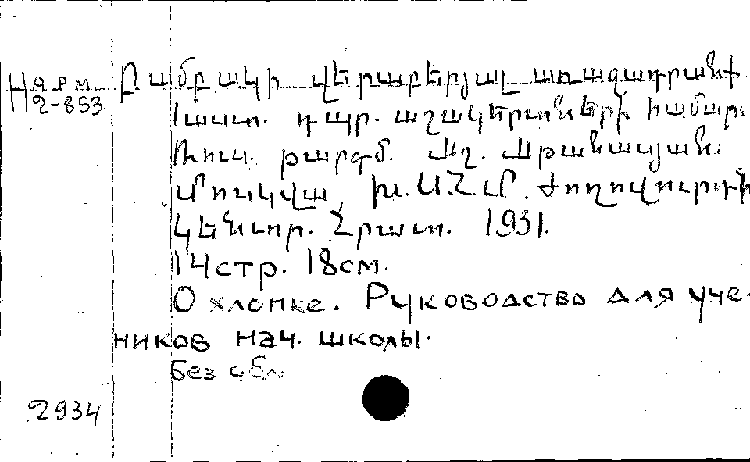 Ня рм Բամբակի վերաբերյալ առաջադրանք
2-853
տարր. դպր. աշակերտների համար.
Ռուս. թարգմ. Աշ. Աթանասյան.
Մոսկվա, Խ.Ս.Հ.Մ. Ժողովուրդի
Կենտր. Հրատ. 1931.
14стр. 18см.
О хлопке. Руководство для уче-
ников нач. школы.
Без обл
2934